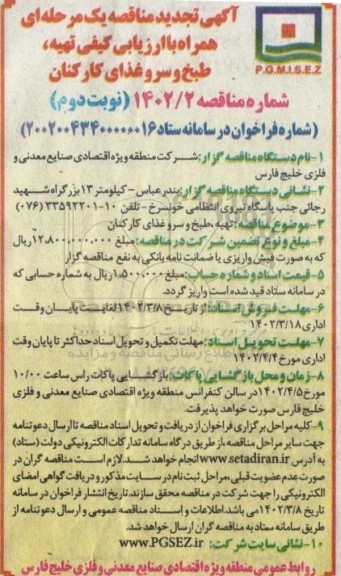 آگهی تجدید مناقصه یک مرحله ای
همراه با ارزیابی کیفی تهیه،
طبخ و سرو غذای کارکنان
P.G.M.I.S.E.Z
شماره مناقصه ۱۴۰۲/۲ (نوبت دوم)
(شماره فراخوان در سامانه ستاد ۲۰۰۲۰۰۴۳۴۰۰۰۰۰۰۱۶)
۱-نام دستگاه مناقصه گزار: شرکت منطقه ویژه اقتصادی صنایع معدنی و
فلزی خلیج فارس
۲- نشانی دستگاه مناقصه گزار: بندرعباس - کیلومتر ۱۳ بزرگراه شهید
رجائی جنب پاسگاه نیروی انتظامی خونسرخ - تلفن ۱۰-۳۳۵۹۲۲۰۱ (۰۷۶)
۳- موضوع مناقصه: تهیه ،طبخ و سرو غذای کارکنان
۴- مبلغ و نوع تضمین شرکت در مناقصه: مبلغ ۱۲،۸۰۰،۰۰۰،۰۰۰ ریال
که به صورت فیش واریزی یا ضمانت نامه بانکی به نفع مناقصه گزار
۵- قیمت اسناد و شماره حساب: مبلغ ۱،۵۰۰،۰۰۰ ریال به شماره حسابی که
در سامانه ستاد قید شده است واریز گردد.
۶- مهلت فروش اسناد: از تاریخ ۱۴۰۲/۳/۸ لغایت پایان وقت
اداری ۱۴۰۲/۳/۱۸
۷- مهلت تحویل اسناد: مهلت تکمیل و تحویل اسناد حداکثر تا پایان وقت
اداری مورخ ۱۴۰۲/۴/۴
۸- زمان و محل بازگشایی پاکات: بازگشایی پاکات راس ساعت ۱۰/۰۰
مورخ ۱۴۰۲/۴/۵ در سالن کنفرانس منطقه ویژه اقتصادی صنایع معدنی و فلزی
خلیج فارس صورت خواهد پذیرفت.
۹- کلیه مراحل برگزاری فراخوان از دریافت و تحویل اسناد مناقصه تا ارسال دعوتنامه
جهت سایر مراحل مناقصه، از طریق درگاه سامانه تدارکات الکترونیکی دولت (ستاد)
به آدرس www.setadiran.ir انجام خواهد شد. لازم است مناقصه گران در
صورت عدم عضویت قبلی، مراحل ثبت نام در سایت مذکور و دریافت گواهی امضای
الکترونیکی را جهت شرکت در مناقصه محقق سازند. تاریخ انتشار فراخوان در سامانه
تاریخ ۱۴۰۲/۳/۸ می باشد. اطلاعات و اسناد مناقصه عمومی و ارسال دعوتنامه از
طریق سامانه ستاد به مناقصه گران ارسال خواهد شد.
۱۰- نشانی سایت شرکت: www.PGSEZ.ir
روابط عمومی منطقه ویژه اقتصادی صنایع معدنی و فلزی خلیج فارس